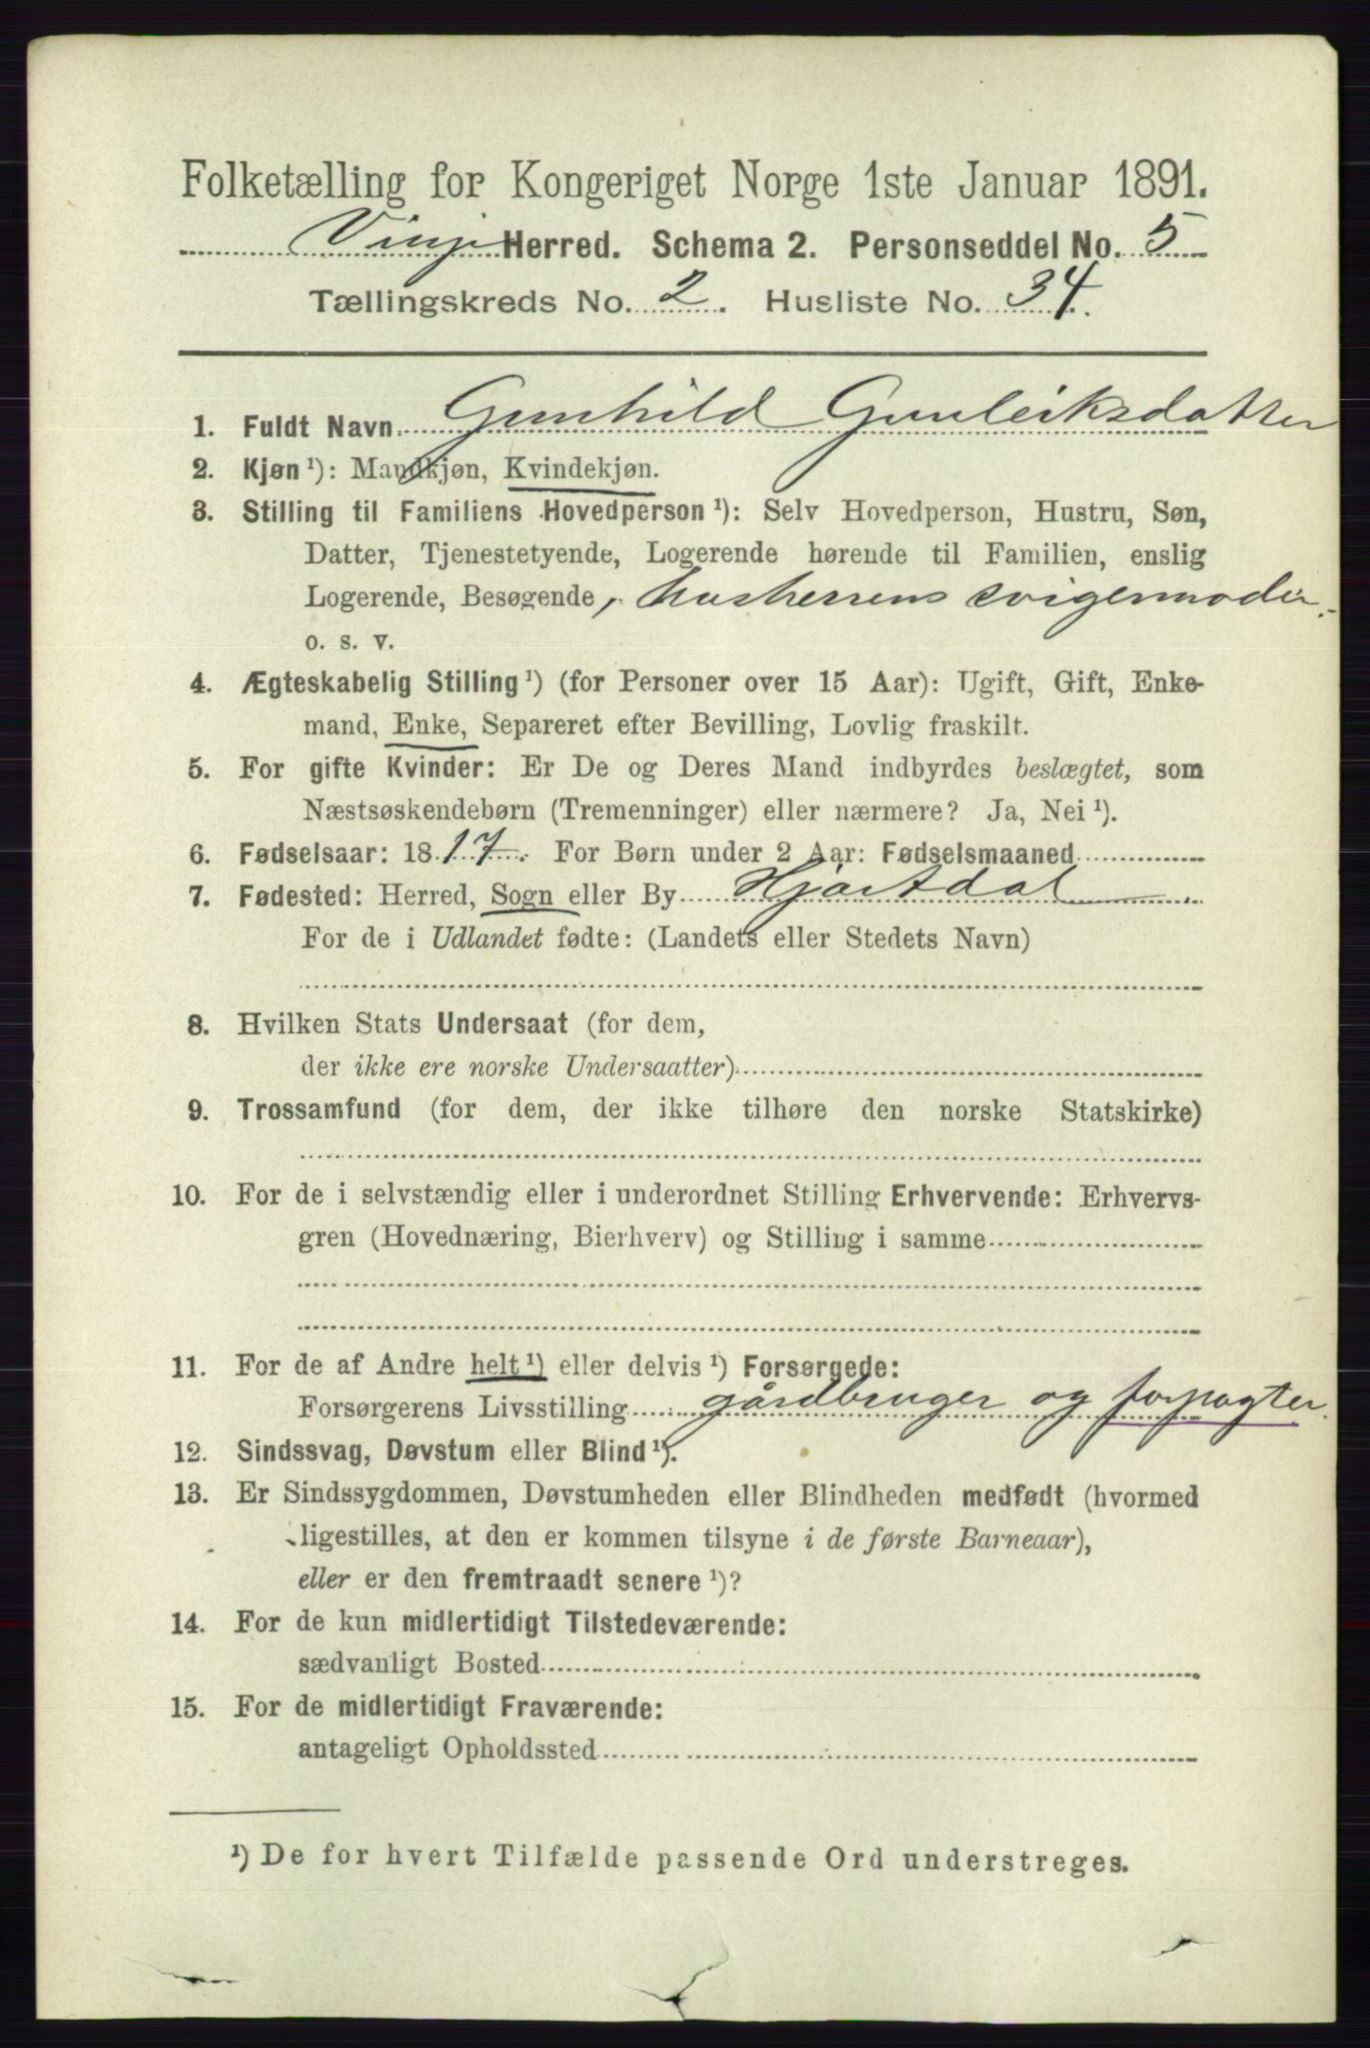 Folketælling for Kongeriget Norge 1ste Januar 1891.
Vinje Herred. Schema 2. Personseddel No. 5
Tællingskreds No. 2. Husliste No. 34.
1. Fuldt Navn Gunhild Gunleiksdatter
2. Kjøn ¹): Mandkjøn, Kvindekjøn.
3. Stilling til Familiens Hovedperson ¹): Selv Hovedperson, Hustru, Søn,
Datter, Tjenestetyende, Logerende hørende til Familien, enslig
Logerende, Besøgende, husherrens svigermoder.
o. s. v.
4. Ægteskabelig Stilling ¹) (for Personer over 15 Aar): Ugift, Gift, Enke-
mand, Enke, Separeret efter Bevilling, Lovlig fraskilt.
5. For gifte Kvinder: Er De og Deres Mand indbyrdes beslægtet, som
Næstsøskendebørn (Tremenninger) eller nærmere? Ja, Nei ¹).
6. Fødselsaar: 1817. For Børn under 2 Aar: Fødselsmaaned
7. Fødested: Herred, Sogn eller By Hjartdal
For de i Udlandet fødte: (Landets eller Stedets Navn)
8. Hvilken Stats Undersaat (for dem,
der ikke ere norske Undersaatter)
9. Trossamfund (for dem, der ikke tilhøre den norske Statskirke)
10. For de i selvstændig eller i underordnet Stilling Erhvervende: Erhvervs-
gren (Hovednæring, Bierhverv) og Stilling i samme
11. For de af Andre helt ¹) eller delvis ¹) Forsørgede:
Forsørgerens Livsstilling gårdbruger og forpagter.
12. Sindssvag, Døvstum eller Blind ¹).
13. Er Sindssygdommen, Døvstumheden eller Blindheden medfødt (hvormed
ligestilles, at den er kommen tilsyne i de første Barneaar),
eller er den fremtraadt senere ¹)?
14. For de kun midlertidigt Tilstedeværende:
sædvanligt Bosted
15. For de midlertidigt Fraværende:
antageligt Opholdssted
¹) De for hvert Tilfælde passende Ord understreges.